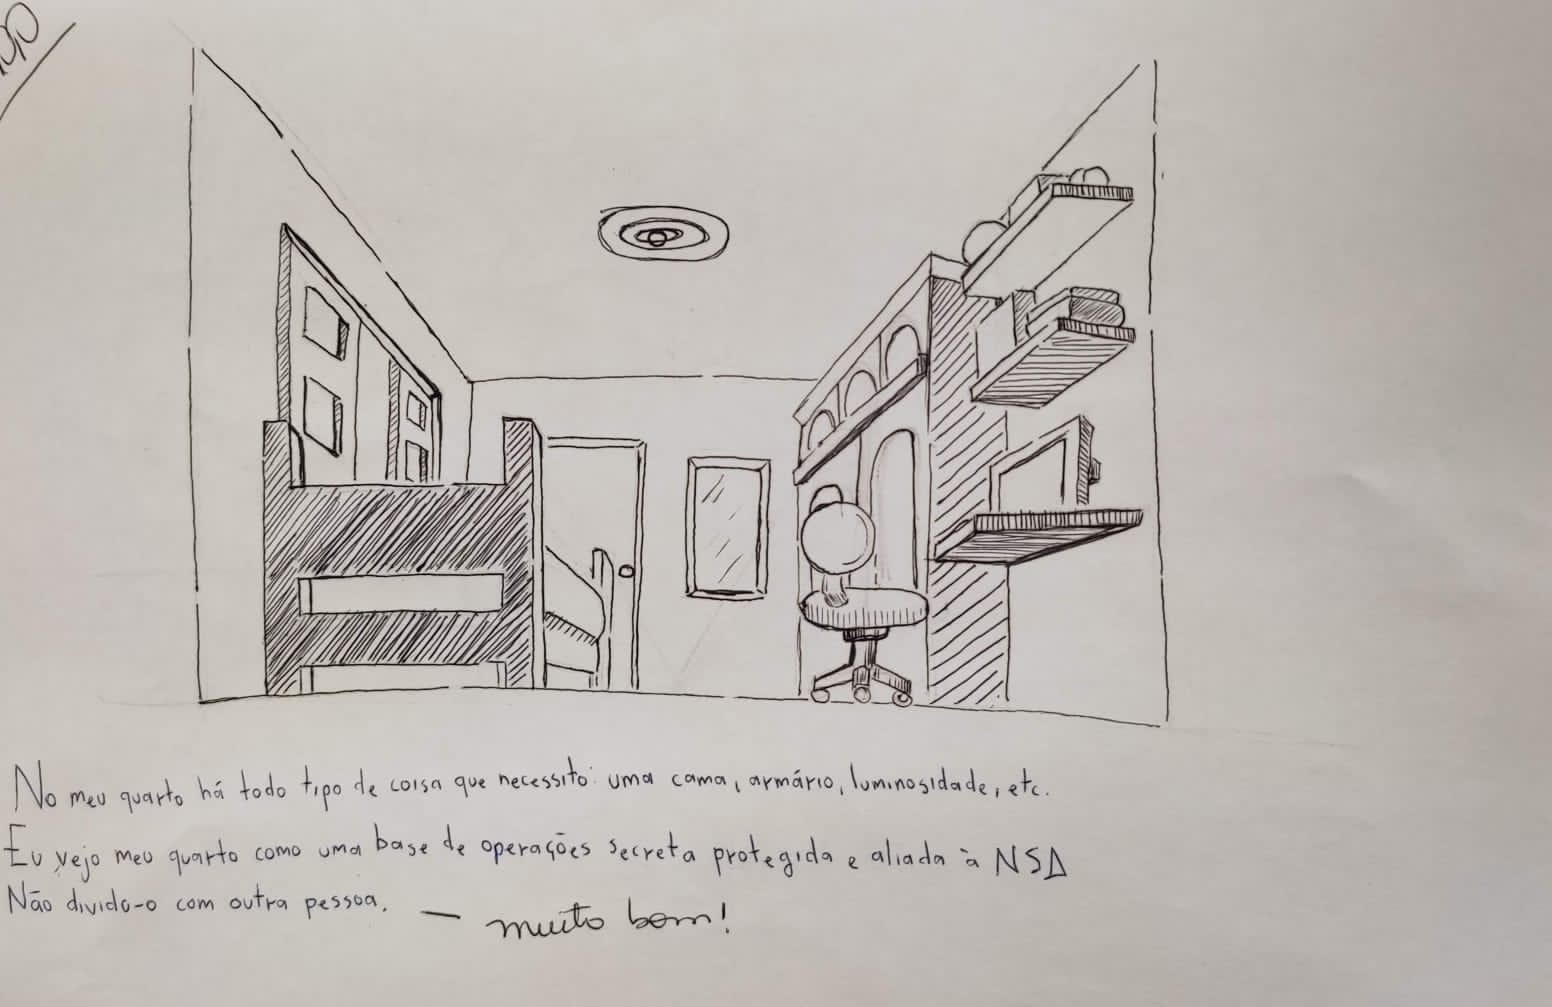 No meu quarto há todo tipo de coisa que necessito: uma cama, armário, luminosidade, etc.
Eu vejo meu quarto como uma base de operações secreta protegida e aliada à NSA
Não divido-o com outra pessoa.
— muito bom!